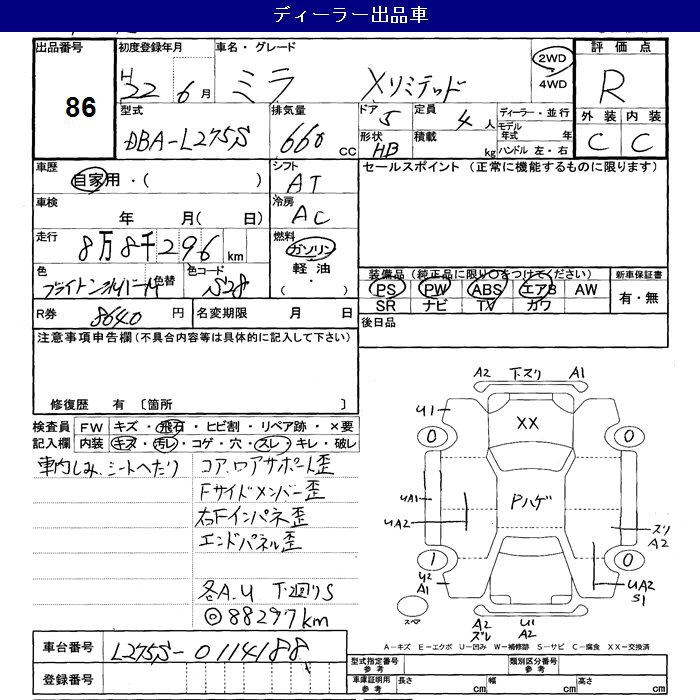 ディーラー出品車
出品番号 初度登録年月 車名・グレード 2WD 4WD 評価点
86 H22年6月 ミラ Xリミテッド R
型式 排気量 ドア 5 定員 4人 ディーラー・並行 外装 内装
DBA-L275S 660 CC 形状 HB 積載 kg モデル年式 年 ハンドル 左・右 C C
車歴 シフト セールスポイント (正常に機能するものに限ります)
自家用・( ) AT
車検 冷房
年 月( 日) AC
走行 燃料
8万8千296km ガソリン
色 色替 色コード 軽油 装備品 (純正品に限り○をつけてください) 新車保証書
S28 ( ・ ) PS PW ABS エアB AW 有・無
SR ナビ TV カワ
R券 8640円 名変期限 月 日 後日品
注意事項申告欄(不具合内容等は具体的に記入して下さい)
修復歴 有 〔箇所 〕
検査員 FW キズ・飛石・ヒビ割・リペア跡・×要
記入欄 内装 キズ・汚レ・コゲ・穴・スレ・キレ・破レ
車内しみ、シートへたり コア、ロアサポート歪
Fサイドメンバー歪
右Fインパネ歪
エンドパネル歪
各A.U 下廻りS
◎88297km
車台番号 L275S-0114188
登録番号
A2 下スリ A1
U1 XX
0 0
UA1 Pハゲ
UA2 スリ A2
1 0
U2 A1 UA2 S1
スペア A2 ズレ U1 A2
A-キズ E-エクボ U-凹み W-補修跡 S-サビ C-腐食 XX-交換済
型式指定番号 参考 類別区分番号 参考
車庫証明用 参考 長さ cm 幅 cm 高さ cm